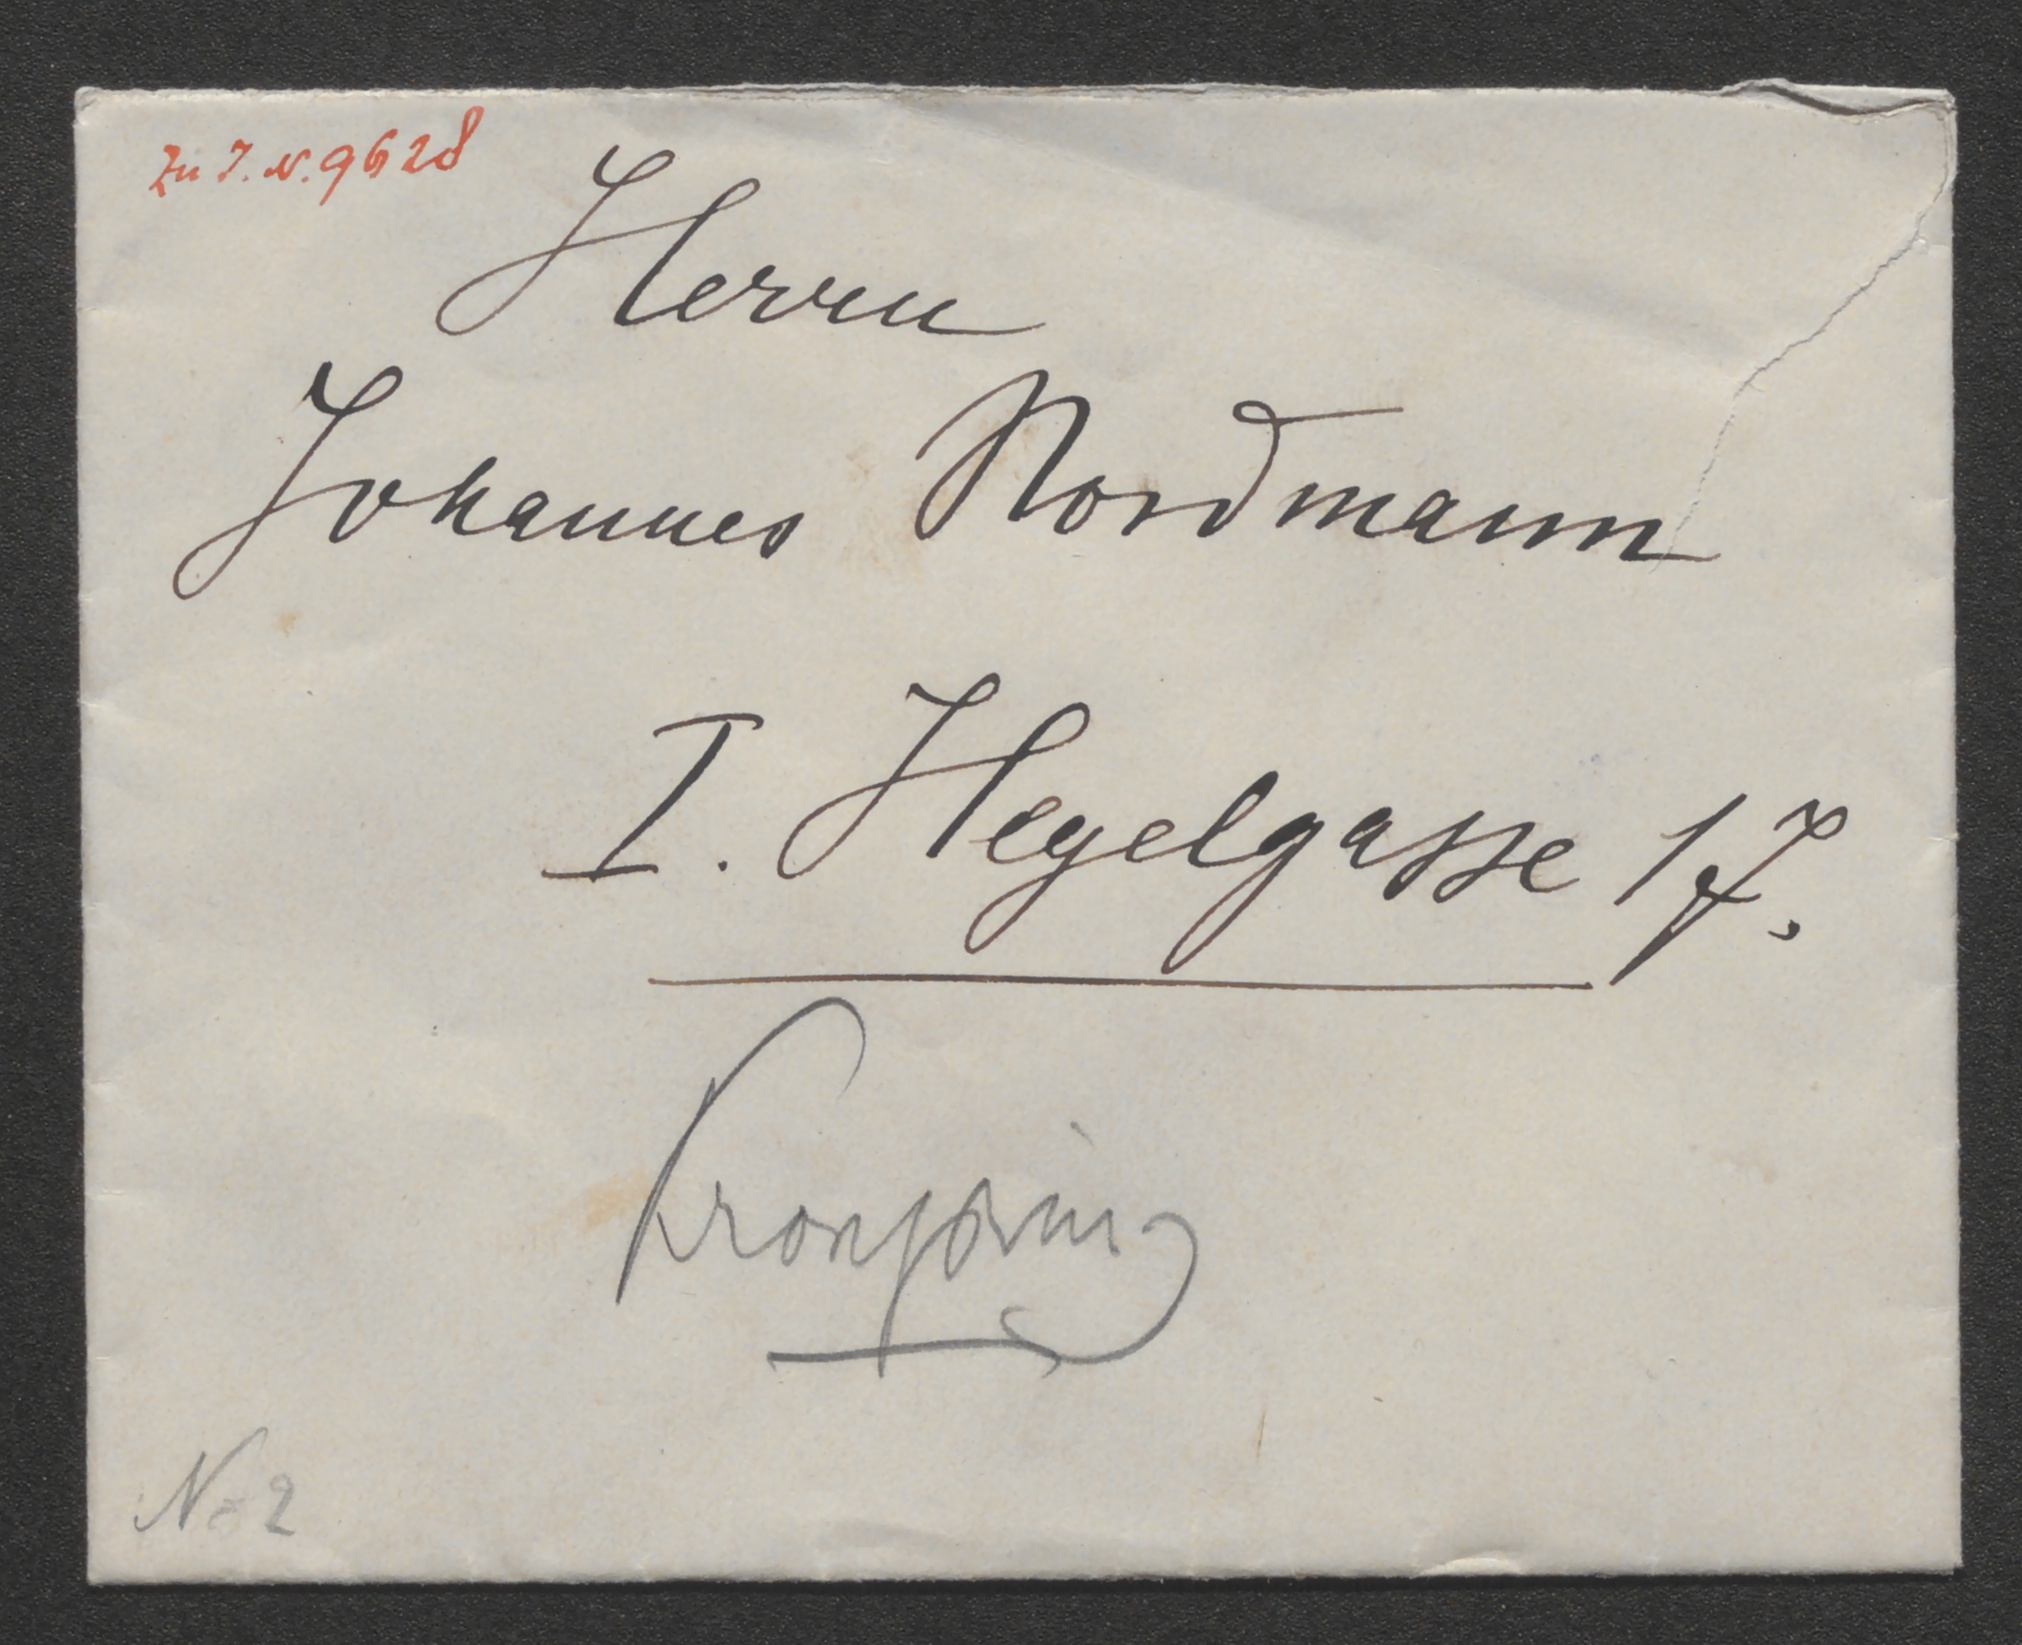 Zu I. N. 9628
Herrn
Johannes Nordmann
I. Hegelgasse 17.
Kronprinz
No 2